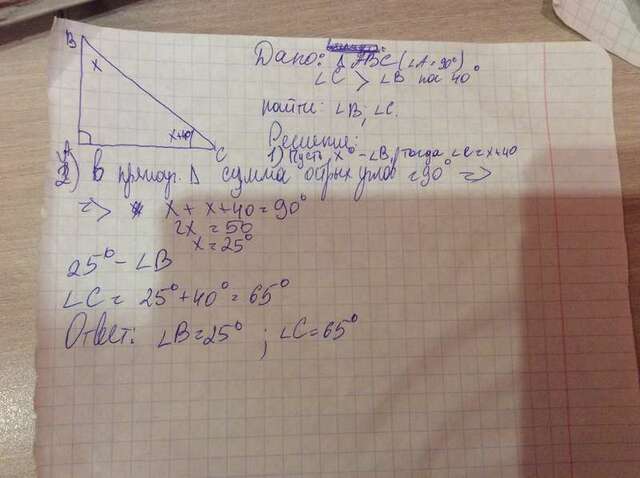 B
x
x+40
A
C
Дано: Δ ABC (∠A=90°)
∠C > ∠B на 40°
найти: ∠B; ∠C.
Решение:
1) Пусть x° - ∠B, тогда ∠C=x+40
2) В прямоуг. Δ сумма острых углов =90° =>
=> x + x+40=90°
2x = 50
x=25°
25° - ∠B
∠C = 25°+40°=65°
Ответ: ∠B=25° ; ∠C=65°